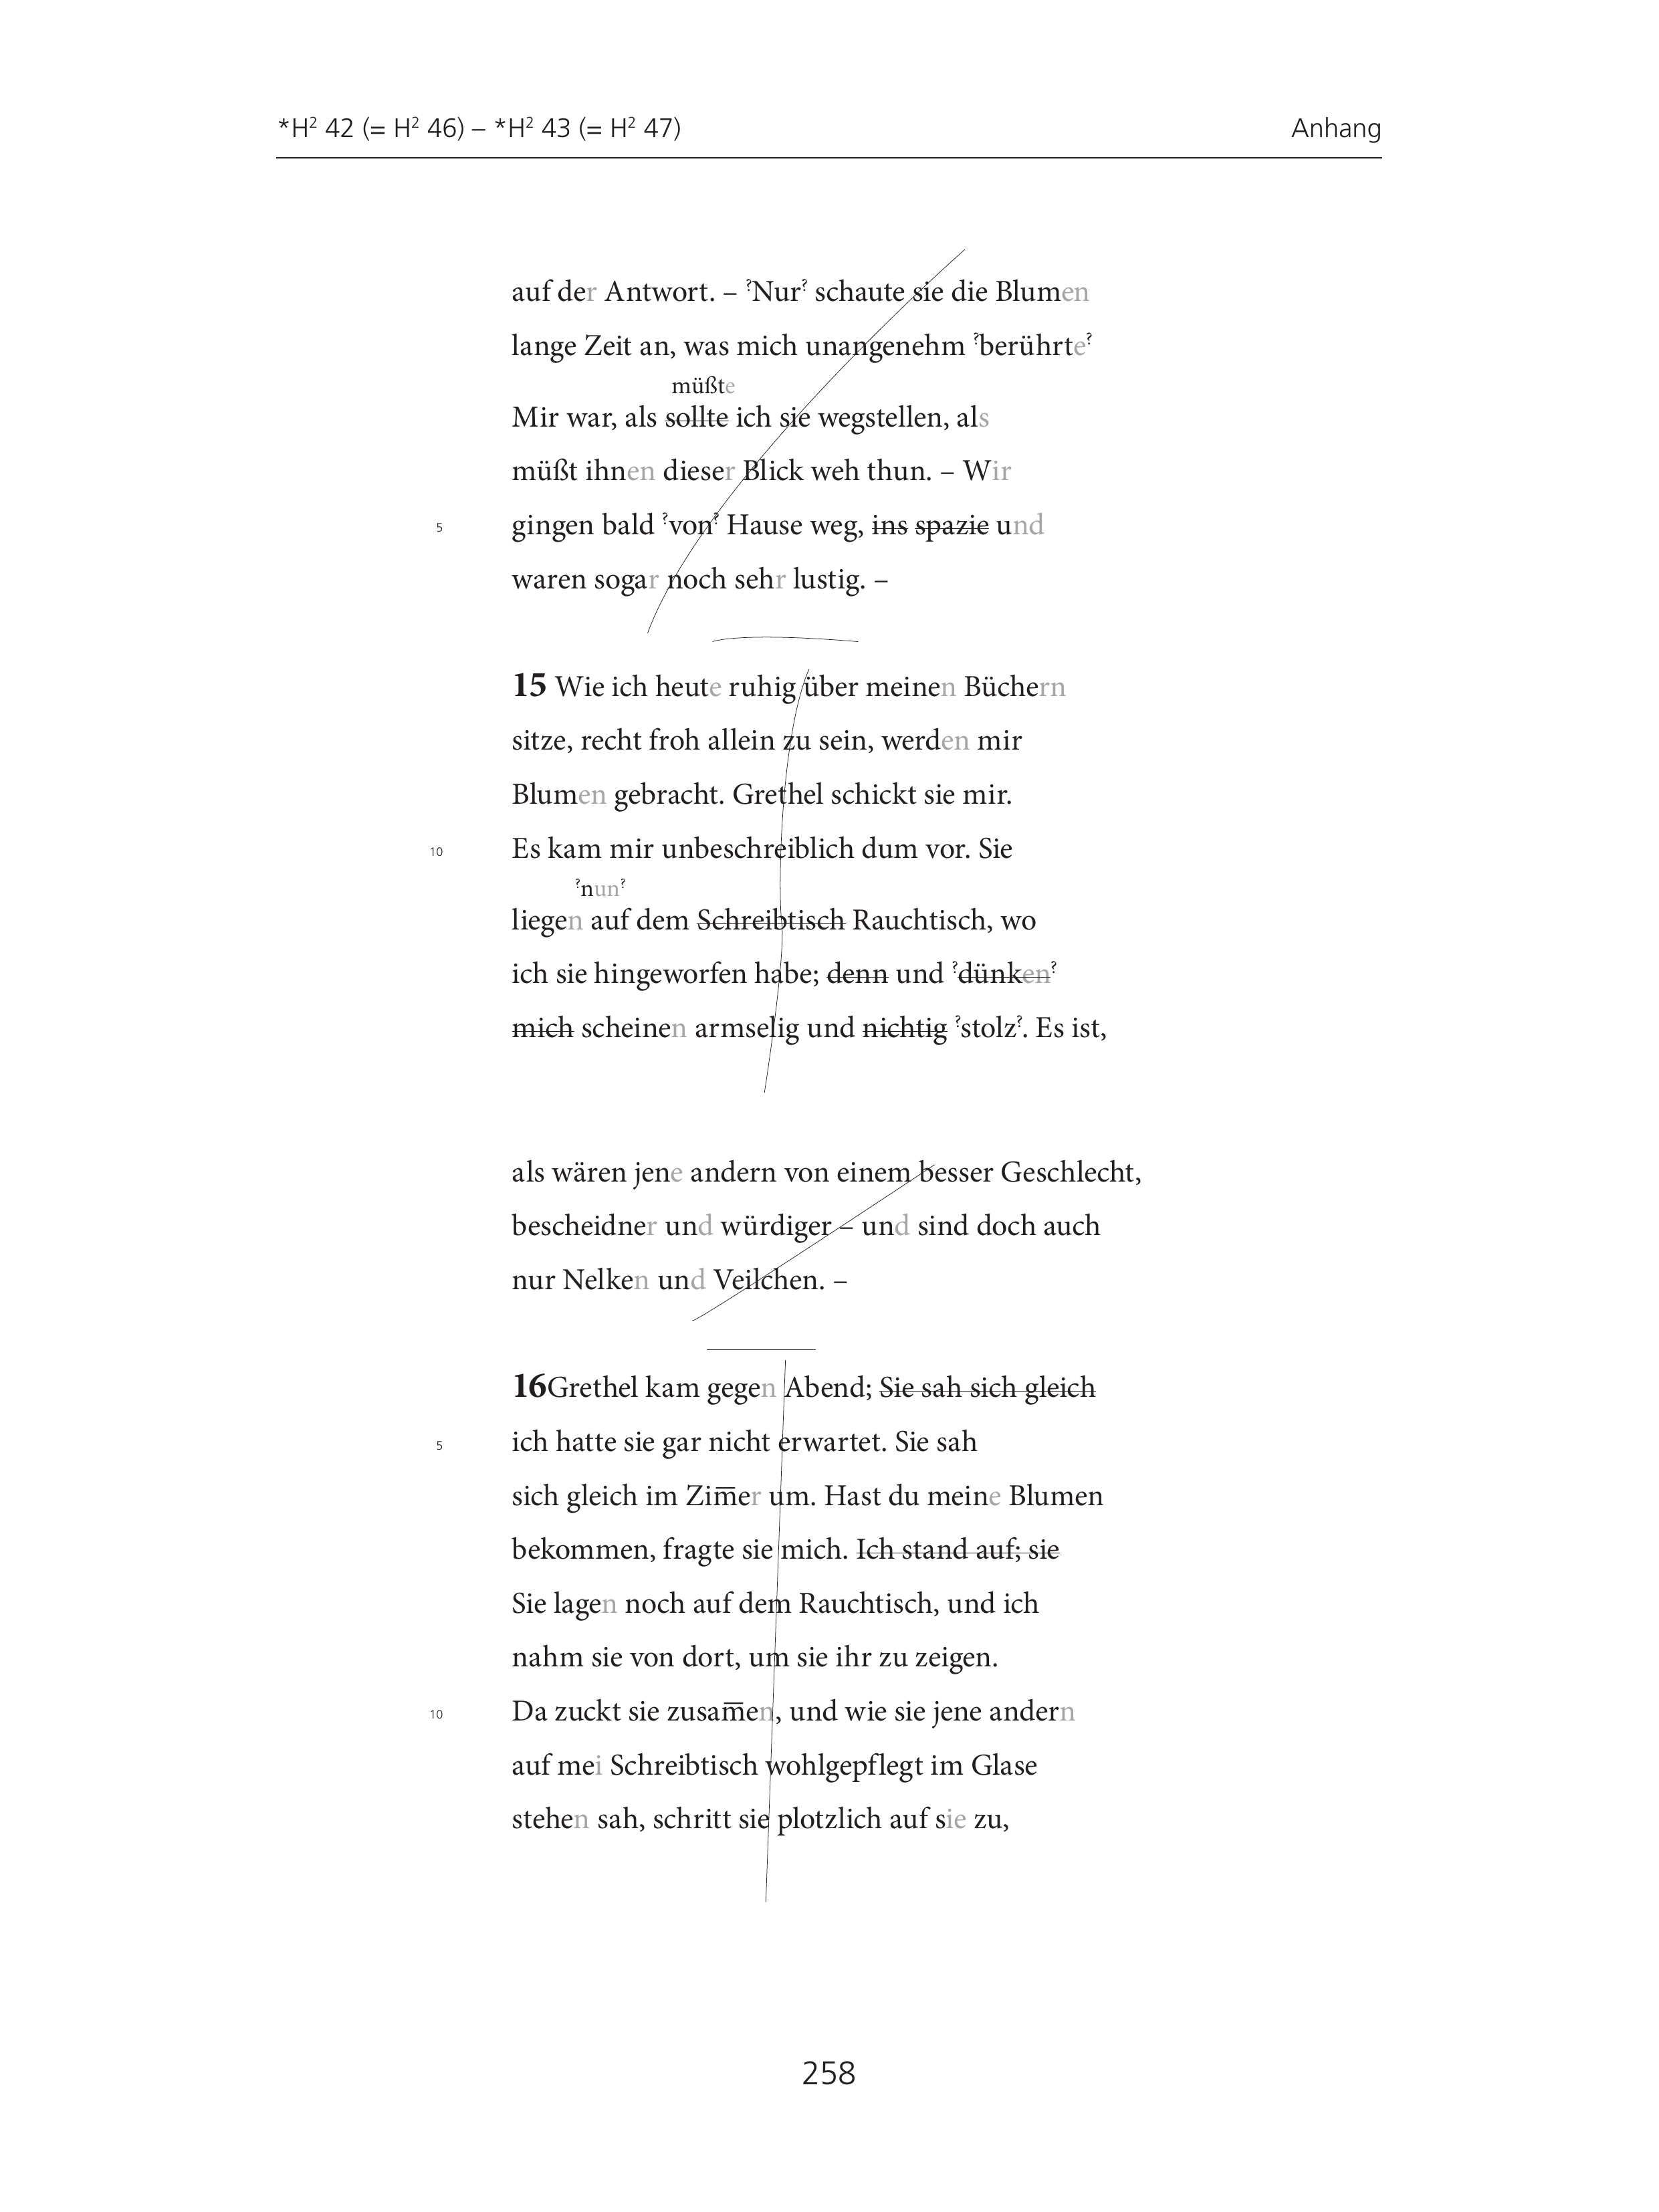 *H² 42 (= H² 46) – *H² 43 (= H² 47) Anhang
auf der Antwort. – ?Nur? schaute sie die Blumen
lange Zeit an, was mich unangenehm ?berührte?
müßte
Mir war, als sollte ich sie wegstellen, als
müßt ihnen dieser Blick weh thun. – Wir
5 gingen bald ?von? Hause weg, ins spazie und
waren sogar noch sehr lustig. –
15 Wie ich heute ruhig über meinen Büchern
sitze, recht froh allein zu sein, werden mir
Blumen gebracht. Grethel schickt sie mir.
10 Es kam mir unbeschreiblich dum vor. Sie
?nun?
liegen auf dem Schreibtisch Rauchtisch, wo
ich sie hingeworfen habe; denn und ?dünken?
mich scheinen armselig und nichtig ?stolz?. Es ist,
als wären jene andern von einem besser Geschlecht,
bescheidner und würdiger – und sind doch auch
nur Nelken und Veilchen. –
16Grethel kam gegen Abend; Sie sah sich gleich
5 ich hatte sie gar nicht erwartet. Sie sah
sich gleich im Zim̅er um. Hast du meine Blumen
bekommen, fragte sie mich. Ich stand auf; sie
Sie lagen noch auf dem Rauchtisch, und ich
nahm sie von dort, um sie ihr zu zeigen.
10 Da zuckt sie zusam̅en, und wie sie jene andern
auf mei Schreibtisch wohlgepflegt im Glase
stehen sah, schritt sie plotzlich auf sie zu,
258